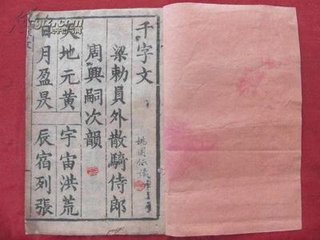 千字文
梁勅員外散騎侍郎
周興嗣次韻
天地元黃 宇宙洪荒
日月盈昃 辰宿列張